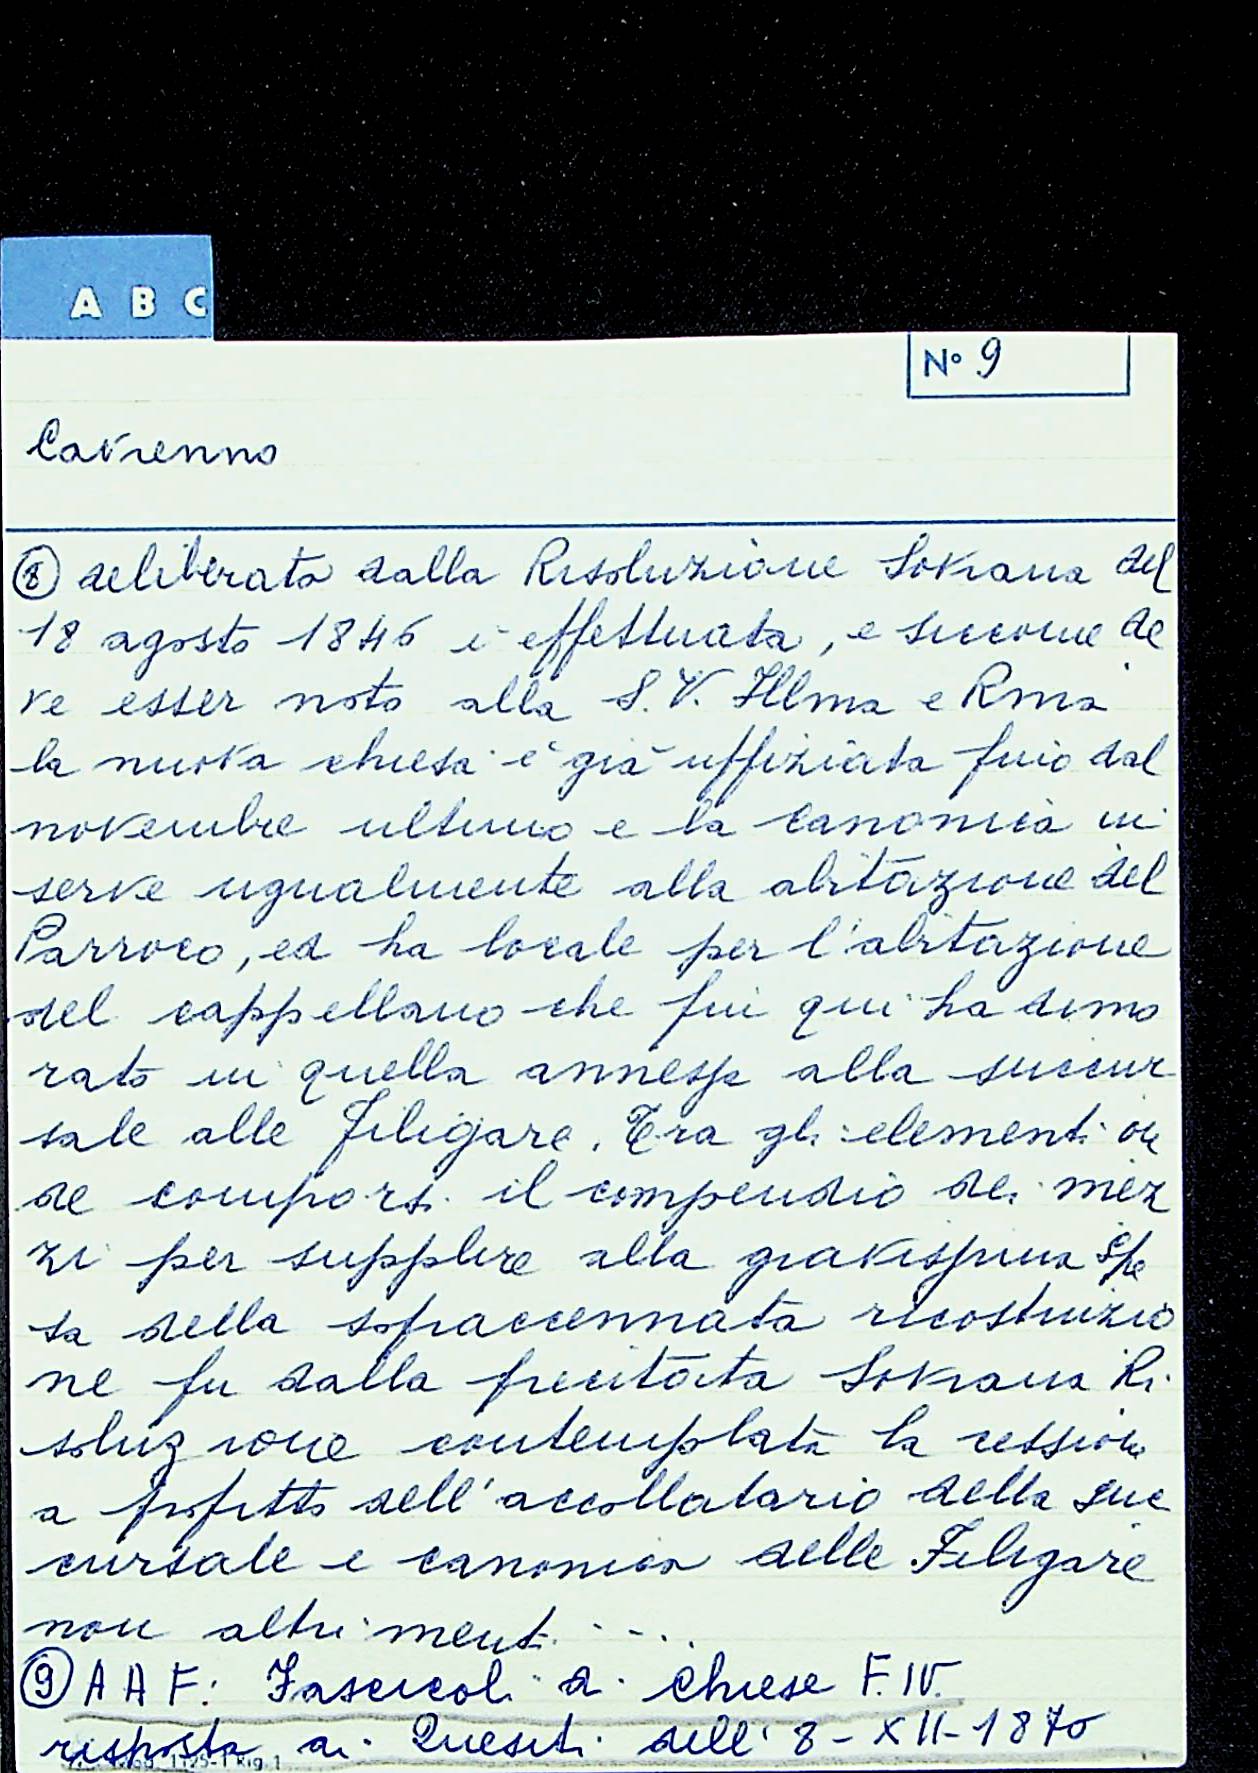 A B C
N° 9
Cavrenno
⑧ deliberata dalla Risoluzione Sovrana del
18 agosto 1846 è effettuata, e siccome de
ve esser noto alla S.V. Illma e Rma
la nuova chiesa è già uffiziata fino dal
novembre ultimo e la canonica ivi
serve ugualmente alla abitazione del
Parroco, ed ha locale per l'abitazione
del cappellano che fin qui ha dimo
rato in quella annessa alla succur
sale alle Filigare. Tra gli elementi on
de comporsi il compendio dei mez
zi per supplire alla gravissima spe
sa della sopraccennata ricostruzio
ne fu dalla precitata Sovrana Ri
soluzione contemplata la cessione
a profitto dell'accollatario della suc
cursale e canonica delle Filigare
non altrimenti .....
⑨ A A F: Fascicoli di Chiese F. IV.
risposta ai Quesiti dell' 8-XII-1870
1125-1 Rig. 1